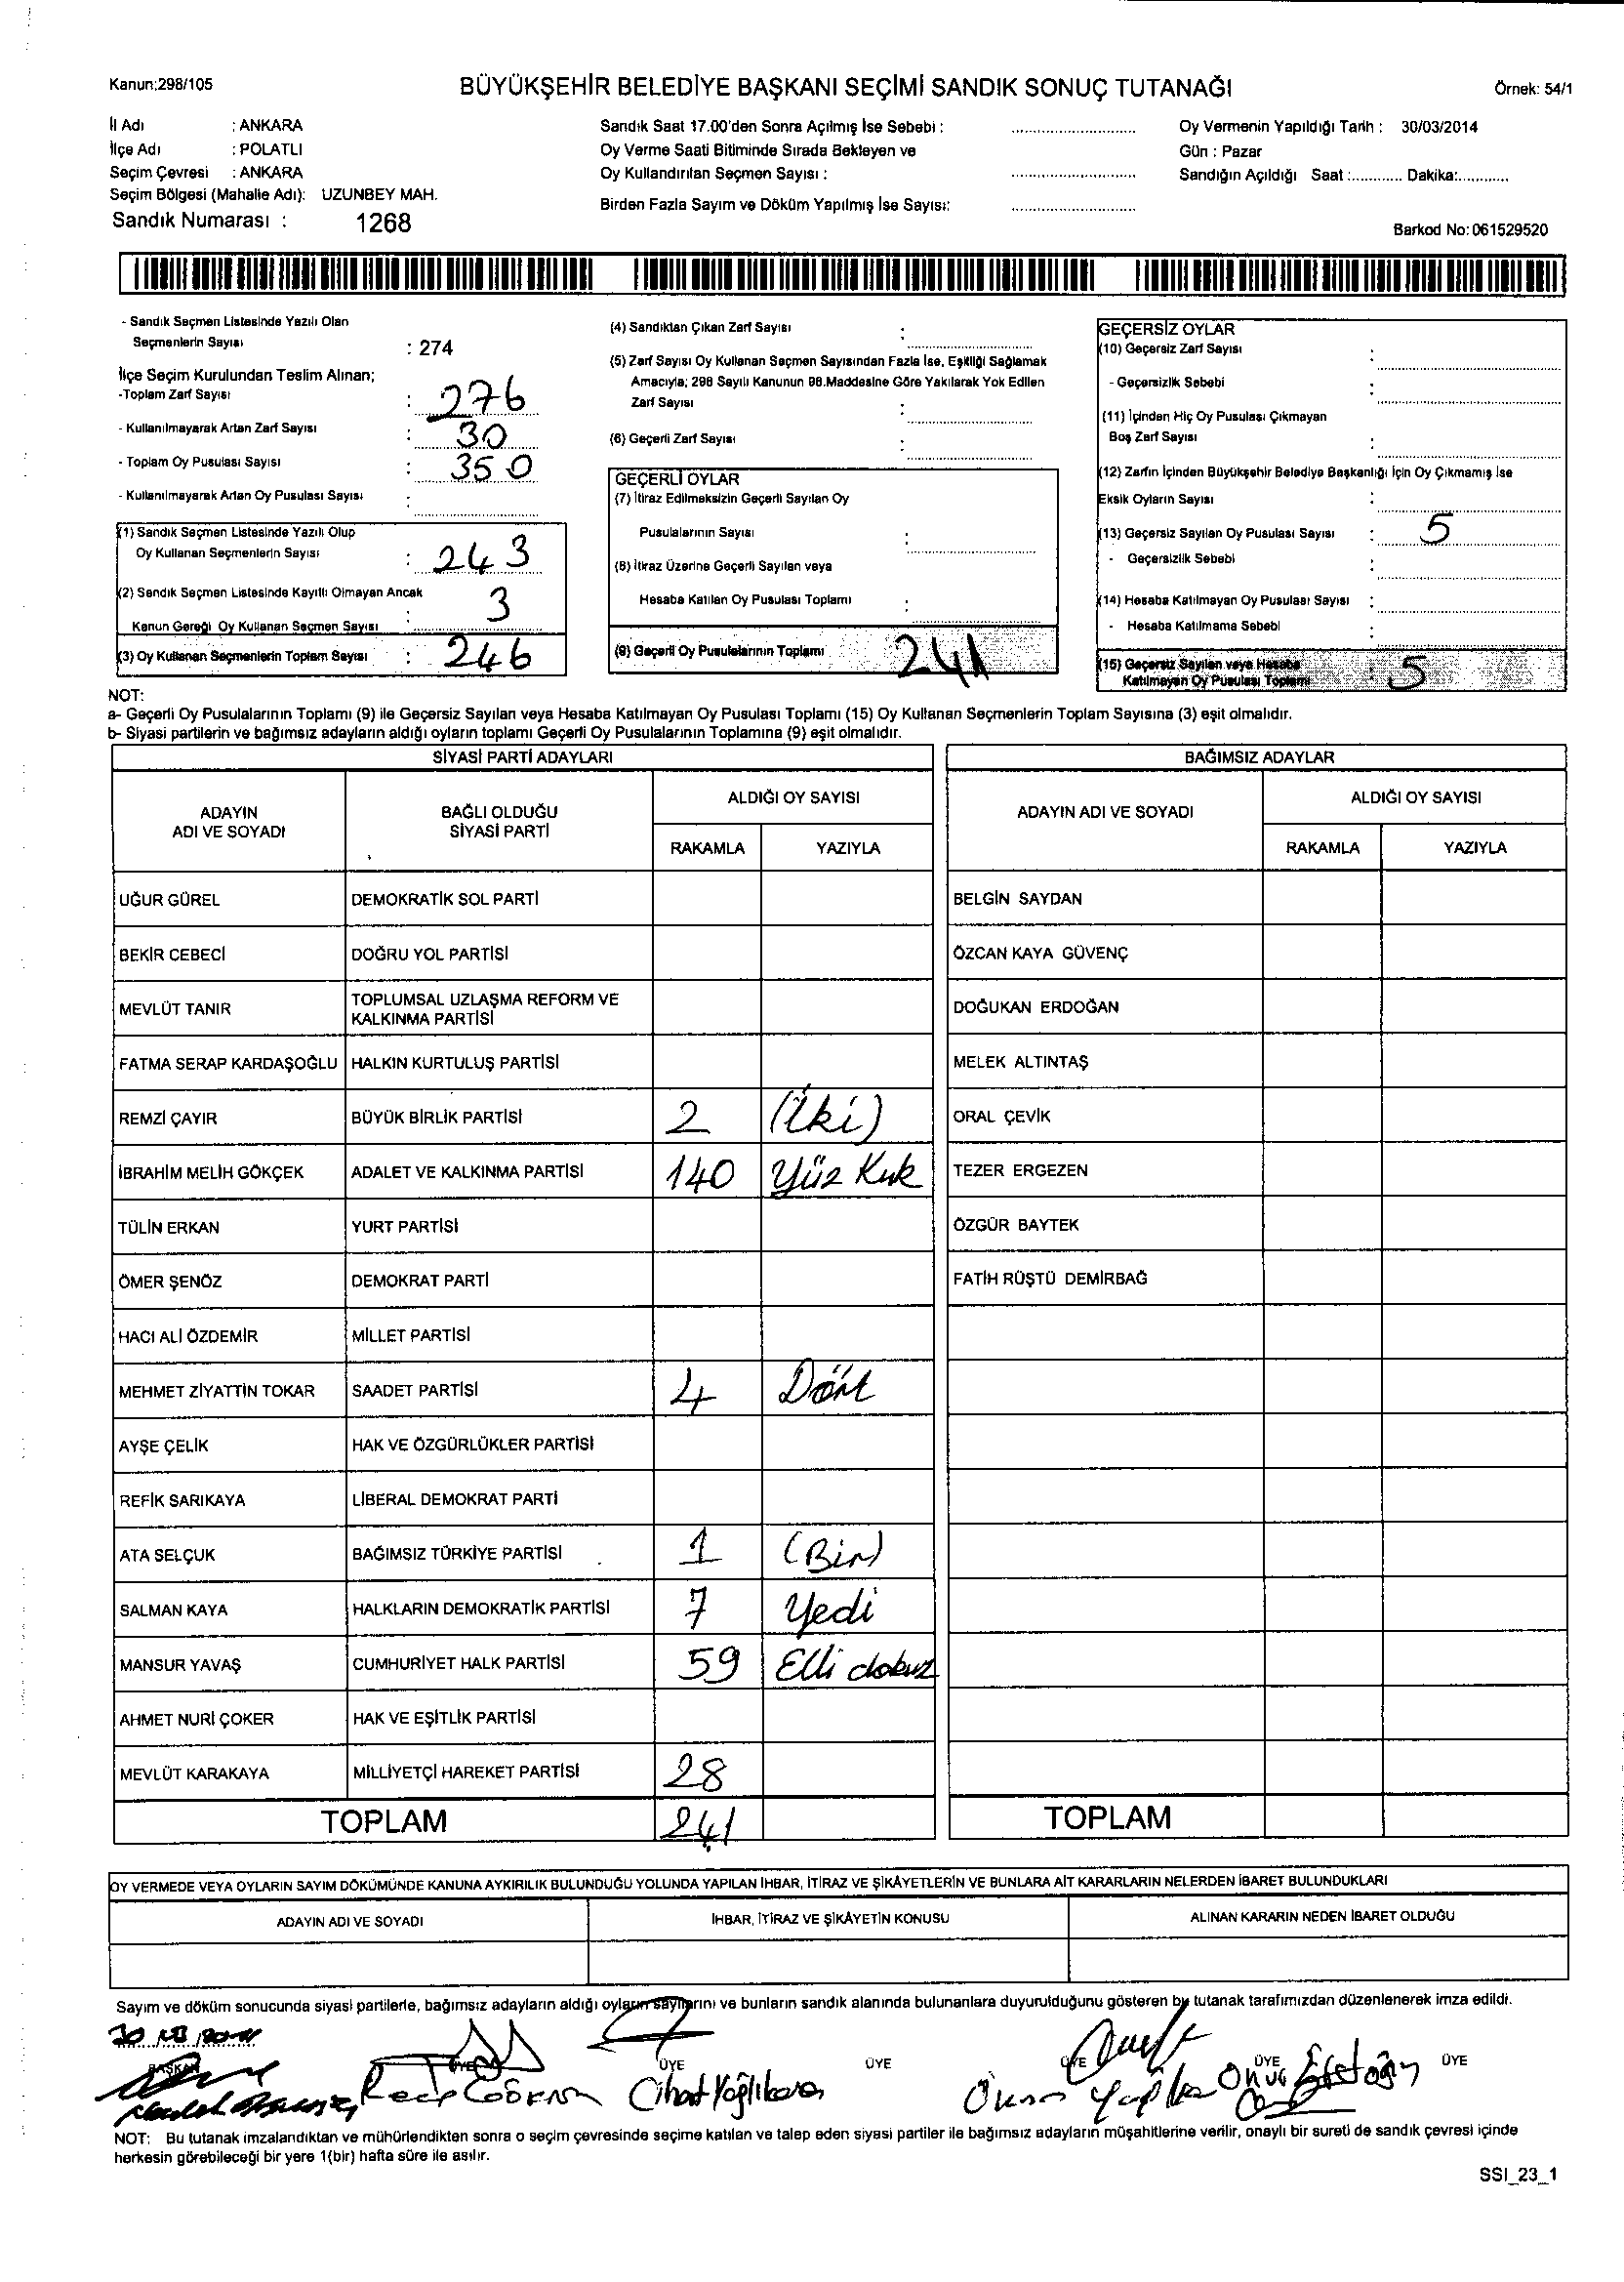 Kanun:298/105
BÜYÜKŞEHİR BELEDİYE BAŞKANI SEÇİMİ SANDIK SONUÇ TUTANAĞI
Örnek: 54/1
İl Adı : ANKARA
İlçe Adı : POLATLI
Seçim Çevresi : ANKARA
Seçim Bölgesi (Mahalle Adı): UZUNBEY MAH.
Sandık Numarası : 1268
Sandık Saat 17.00'den Sonra Açılmış İse Sebebi :
Oy Verme Saati Bitiminde Sırada Bekleyen ve
Oy Kullandırılan Seçmen Sayısı :
Birden Fazla Sayım ve Döküm Yapılmış İse Sayısı:
Oy Vermenin Yapıldığı Tarih : 30/03/2014
Gün : Pazar
Sandığın Açıldığı Saat :............ Dakika:............
Barkod No: 061529520
- Sandık Seçmen Listesinde Yazılı Olan
Seçmenlerin Sayısı : 274
İlçe Seçim Kurulundan Teslim Alınan;
-Toplam Zarf Sayısı : 276
- Kullanılmayarak Artan Zarf Sayısı : 30
- Toplam Oy Pusulası Sayısı : 350
- Kullanılmayarak Artan Oy Pusulası Sayısı :
(1) Sandık Seçmen Listesinde Yazılı Olup
Oy Kullanan Seçmenlerin Sayısı : 243
(2) Sandık Seçmen Listesinde Kayıtlı Olmayan Ancak
Kanun Gereği Oy Kullanan Seçmen Sayısı : 3
(3) Oy Kullanan Seçmenlerin Toplam Sayısı : 246
(4) Sandıktan Çıkan Zarf Sayısı :
(5) Zarf Sayısı Oy Kullanan Seçmen Sayısından Fazla İse, Eşitliği Sağlamak
Amacıyla; 298 Sayılı Kanunun 98.Maddesine Göre Yakılarak Yok Edilen
Zarf Sayısı :
(6) Geçerli Zarf Sayısı :
GEÇERLİ OYLAR
(7) İtiraz Edilmeksizin Geçerli Sayılan Oy
Pusulalarının Sayısı :
(8) İtiraz Üzerine Geçerli Sayılan veya
Hesaba Katılan Oy Pusulası Toplamı :
(9) Geçerli Oy Pusulalarının Toplamı : 241
GEÇERSİZ OYLAR
(10) Geçersiz Zarf Sayısı :
- Geçersizlik Sebebi :
(11) İçinden Hiç Oy Pusulası Çıkmayan
Boş Zarf Sayısı :
(12) Zarfın İçinden Büyükşehir Belediye Başkanlığı İçin Oy Çıkmamış İse
Eksik Oyların Sayısı :
(13) Geçersiz Sayılan Oy Pusulası Sayısı : 5
- Geçersizlik Sebebi :
(14) Hesaba Katılmayan Oy Pusulası Sayısı :
- Hesaba Katılmama Sebebi :
(15) Geçersiz Sayılan veya Hesaba
Katılmayan Oy Pusulası Toplamı : 5
NOT:
a- Geçerli Oy Pusulalarının Toplamı (9) ile Geçersiz Sayılan veya Hesaba Katılmayan Oy Pusulası Toplamı (15) Oy Kullanan Seçmenlerin Toplam Sayısına (3) eşit olmalıdır.
b- Siyasi partilerin ve bağımsız adayların aldığı oyların toplamı Geçerli Oy Pusulalarının Toplamına (9) eşit olmalıdır.
SİYASİ PARTİ ADAYLARI
ADAYIN ADI VE SOYADI BAĞLI OLDUĞU SİYASİ PARTİ ALDIĞI OY SAYISI
RAKAMLA YAZIYLA
UĞUR GÜREL DEMOKRATİK SOL PARTİ
BEKİR CEBECİ DOĞRU YOL PARTİSİ
MEVLÜT TANIR TOPLUMSAL UZLAŞMA REFORM VE KALKINMA PARTİSİ
FATMA SERAP KARDAŞOĞLU HALKIN KURTULUŞ PARTİSİ
REMZİ ÇAYIR BÜYÜK BİRLİK PARTİSİ 2 (İki)
İBRAHİM MELİH GÖKÇEK ADALET VE KALKINMA PARTİSİ 140 Yüz Kırk
TÜLİN ERKAN YURT PARTİSİ
ÖMER ŞENÖZ DEMOKRAT PARTİ
HACI ALİ ÖZDEMİR MİLLET PARTİSİ
MEHMET ZİYATTİN TOKAR SAADET PARTİSİ 4 Dört
AYŞE ÇELİK HAK VE ÖZGÜRLÜKLER PARTİSİ
REFİK SARIKAYA LİBERAL DEMOKRAT PARTİ
ATA SELÇUK BAĞIMSIZ TÜRKİYE PARTİSİ 1 (Bir)
SALMAN KAYA HALKLARIN DEMOKRATİK PARTİSİ 7 Yedi
MANSUR YAVAŞ CUMHURİYET HALK PARTİSİ 59 Elli dokuz
AHMET NURİ ÇOKER HAK VE EŞİTLİK PARTİSİ
MEVLÜT KARAKAYA MİLLİYETÇİ HAREKET PARTİSİ 28
TOPLAM 241
BAĞIMSIZ ADAYLAR
ADAYIN ADI VE SOYADI ALDIĞI OY SAYISI
RAKAMLA YAZIYLA
BELGİN SAYDAN
ÖZCAN KAYA GÜVENÇ
DOĞUKAN ERDOĞAN
MELEK ALTINTAŞ
ORAL ÇEVİK
TEZER ERGEZEN
ÖZGÜR BAYTEK
FATİH RÜŞTÜ DEMİRBAĞ
TOPLAM
OY VERMEDE VEYA OYLARIN SAYIM DÖKÜMÜNDE KANUNA AYKIRILIK BULUNDUĞU YOLUNDA YAPILAN İHBAR, İTİRAZ VE ŞİKÂYETLERİN VE BUNLARA AİT KARARLARIN NELERDEN İBARET BULUNDUKLARI
ADAYIN ADI VE SOYADI İHBAR, İTİRAZ VE ŞİKÂYETİN KONUSU ALINAN KARARIN NEDEN İBARET OLDUĞU
Sayım ve döküm sonucunda siyasi partilerle, bağımsız adayların aldığı oyların sayılarını ve bunların sandık alanında bulunanlara duyurulduğunu gösteren bu tutanak tarafımızdan düzenlenerek imza edildi.
BAŞKAN ÜYE ÜYE ÜYE ÜYE ÜYE ÜYE
Recep Cihat
NOT: Bu tutanak imzalandıktan ve mühürlendikten sonra o seçim çevresinde seçime katılan ve talep eden siyasi partiler ile bağımsız adayların müşahitlerine verilir, onaylı bir sureti de sandık çevresi içinde
herkesin görebileceği bir yere 1(bir) hafta süre ile asılır.
SSI_23_1